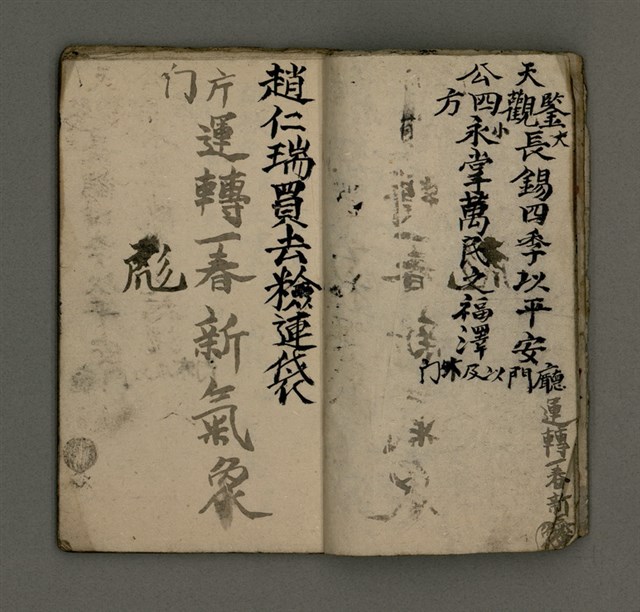 天鑒大觀長錫四季以平安廳門
公四小方永掌萬民之福澤以及外门
運轉一春新
趙仁瑞買去粉連袋
片门
運轉一春新氣象
彪